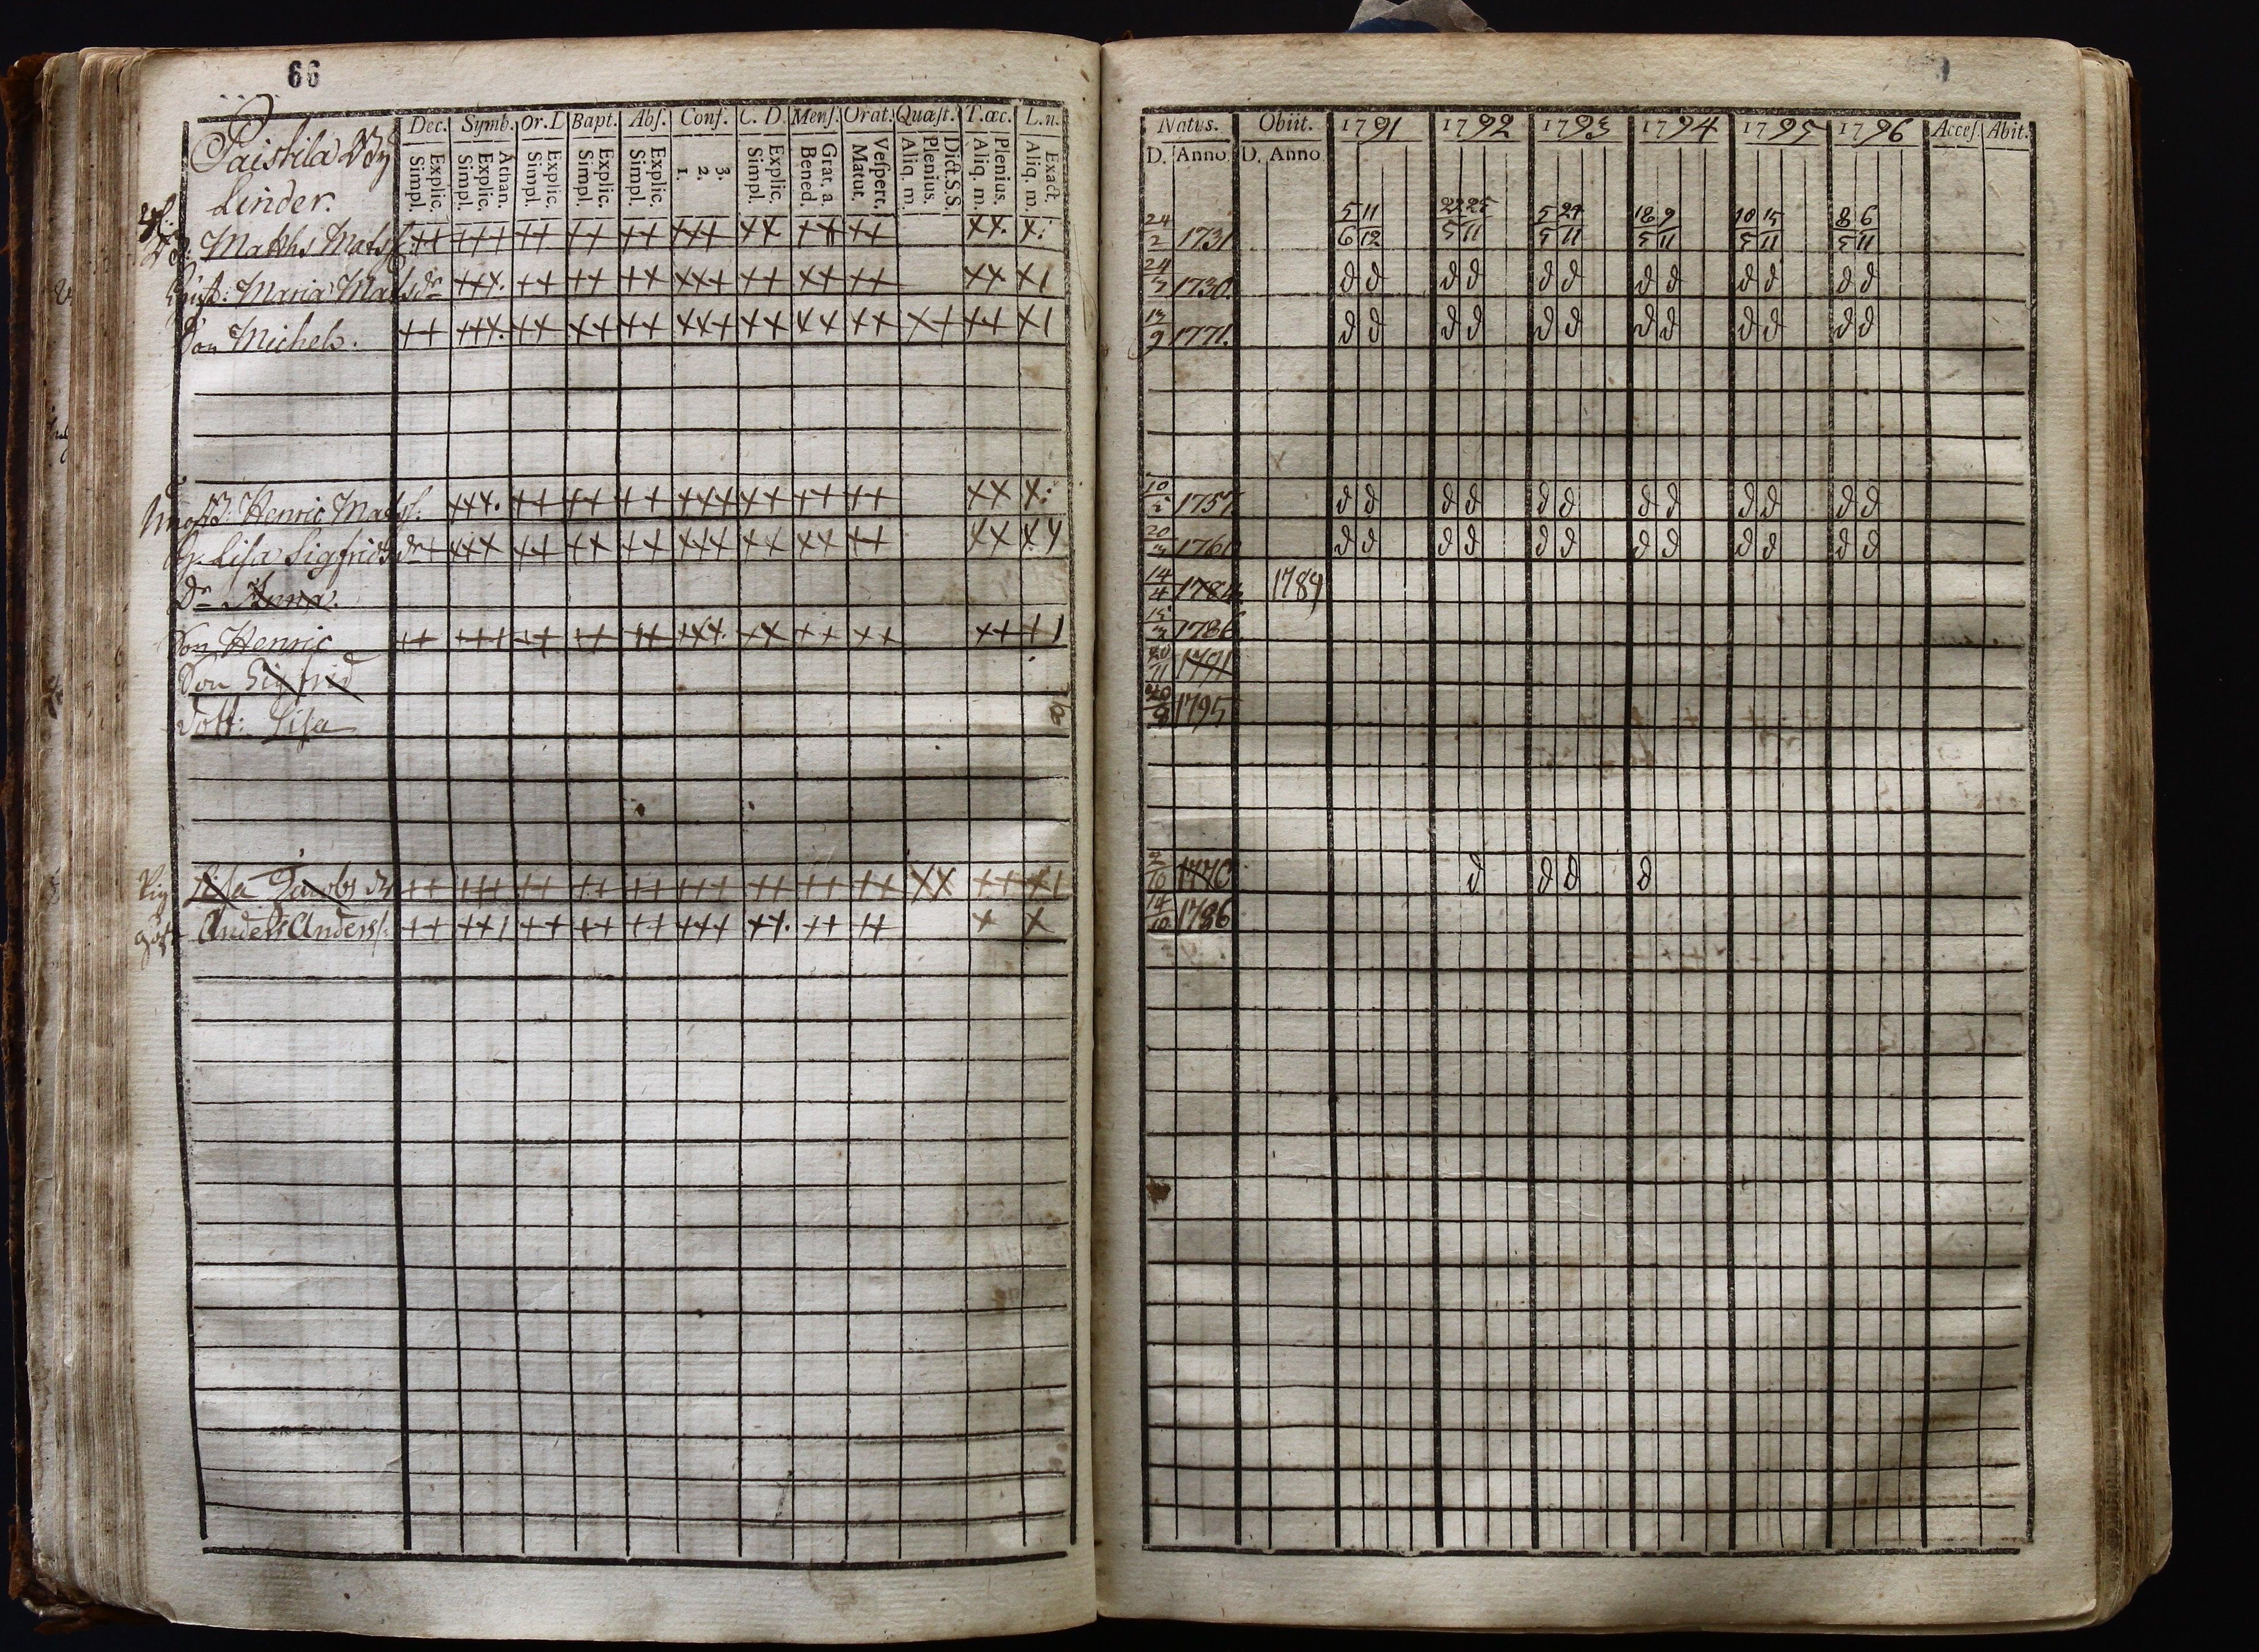 66
Dec. Symb. Or. D Bapt. Abs. Conf. C. D. Mens. Orat. Quæst. T. œc. L. n.
Explic. Simpl. Athan. Explic. Simpl. Explic. Simpl. Explic. Simpl. Explic. Simpl. 3. 2. 1. Explic. Simpl. Grat. a. Bened. Vespert. Matut. Dict. S. S. Plenius. Aliq. m. Plenius. Aliq. m. Exact. Aliq. m.
Natus. Obiit. 1791 1792 1793 1794 1795 1796 Acces. Abit.
D. Anno D. Anno
Paistila By
Linder.
Matths Matss: ++ +++ ++ ++ ++ +++ ++ ++ ++ ++ +: 24/2 1731 5/6 11/12 22/5 25/11 5/5 24/11 18/5 9/11 10/5 15/11 8/5 6/11
Hust: Maria Matsdr +++. ++ ++ ++ +++ ++ ++ ++ ++ +1 1730. d d d d d d d d d d d d
Son Michel. ++ +++. ++ ++ ++ +++ ++ ++ ++ ++ ++ +1 13/9 1771. d d d d d d d d d d d d
Henric Matss. +++. ++ ++ ++ +++ ++ ++ ++ ++ +: 1757 d d d d d d d d d d d d
Lisa Sigfridsdr + +++ ++ ++ ++ +++ ++ ++ ++ ++ ++ 20/3 d d d d d d d d d d d d
Dr Anna. 14/4 1784 1789
Son Henric ++ +++ ++ ++ ++ +++ ++ ++ ++ ++ +1 15/3 1786
Son Sigfrid 1791
Dott: Lisa 1795
Pig Lisa Jacobsdr ++ +++ ++ ++ ++ +++ ++ ++ ++ ++ ++ +1 1770 d d d d
Anders Anderss: ++ ++1 ++ ++ ++ +++ ++. ++ ++ + + 14/10 1786